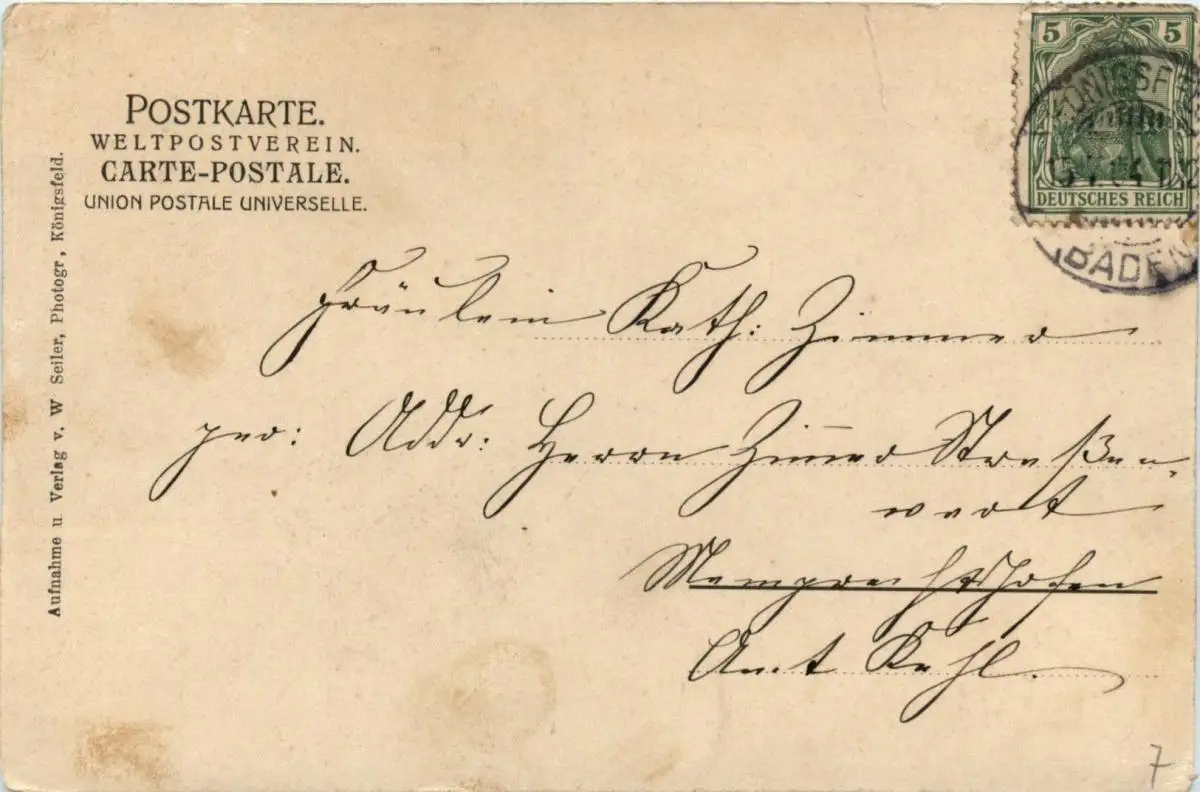 POSTKARTE.
WELTPOSTVEREIN.
CARTE-POSTALE.
UNION POSTALE UNIVERSELLE.
Aufnahme u. Verlag v. W Seiler, Photogr, Königsfeld.
5 5
DEUTSCHES REICH
KÖNIGSFELD
BADEN
Fräulein Kath: Zimmer
per: Addr: Herrn Zim̅er Straßen-
wart
Memprechtshofen
Amt Kehl.
7